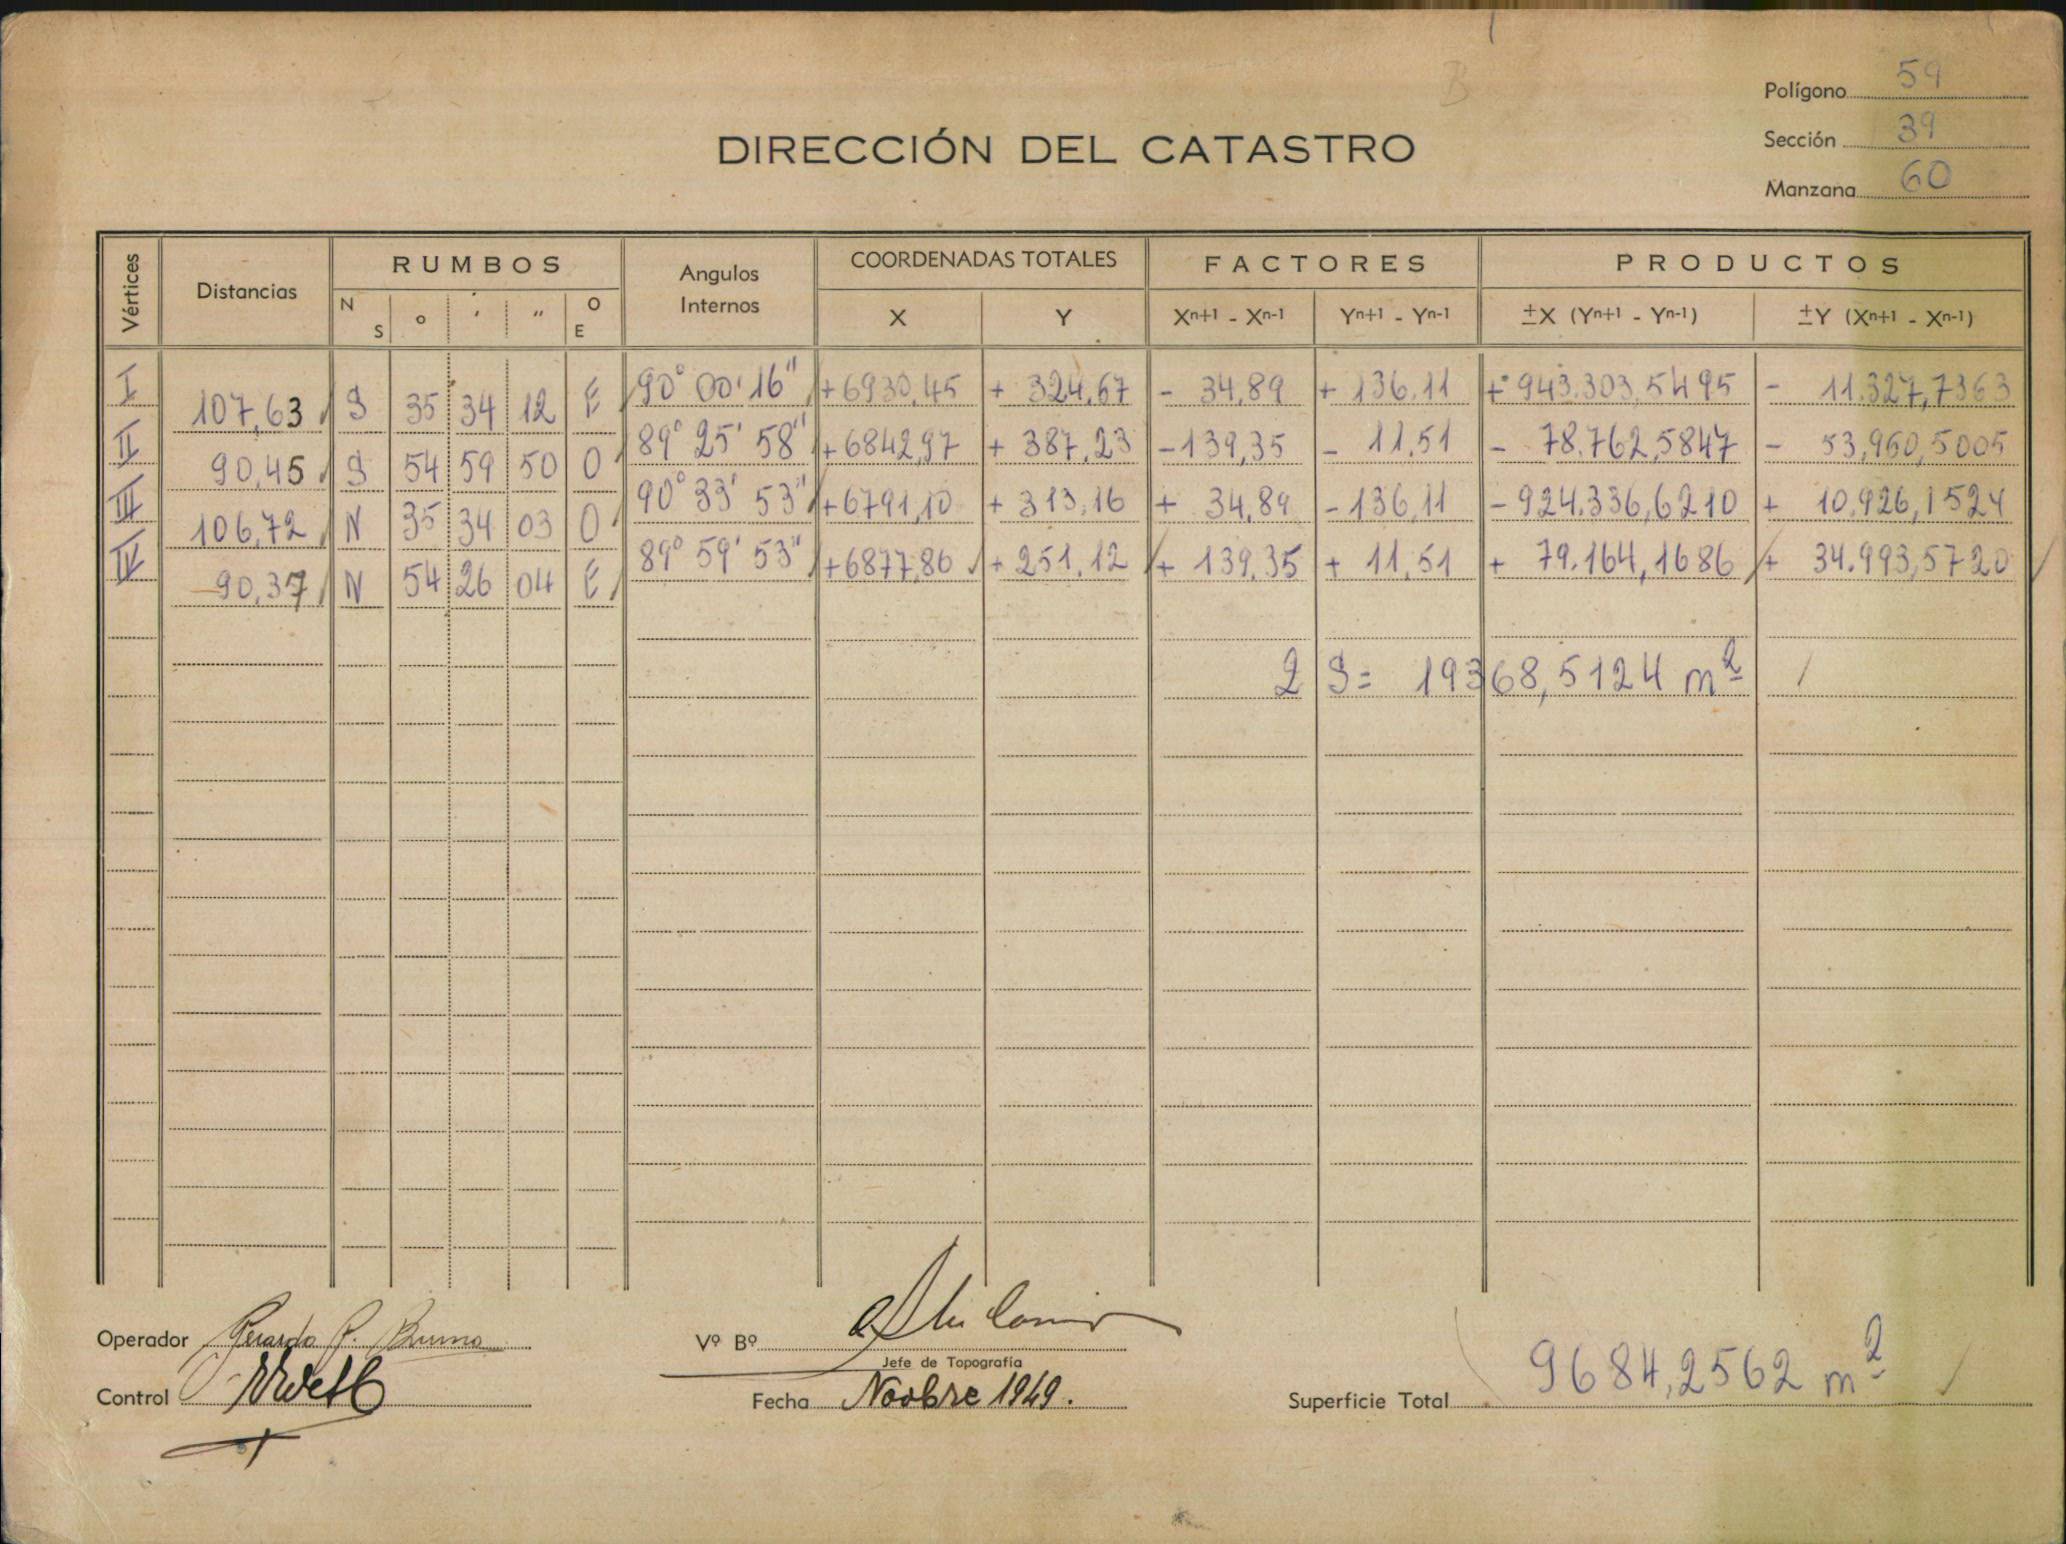 Polígono 59
Sección 39
Manzana 60
DIRECCIÓN DEL CATASTRO
Vértices Distancias RUMBOS Angulos Internos COORDENADAS TOTALES FACTORES PRODUCTOS
N S o ' " O E X Y Xn+1 - Xn-1 Yn+1 - Yn-1 ±X (Yn+1 - Yn-1) ±Y (Xn+1 - Xn-1)
I 90° 00' 16" +6930,45 + 324,67 - 34,89 + 136,11 + 943.303,5495 - 11.327,7363
107,63 S 35 34 12 E
II 89° 25' 58" +6842,97 + 387,23 -139,35 - 11,51 - 78.762,5847 - 53,960,5005
90,45 S 54 59 50 O
III 90° 33' 53" +6791,10 + 313,16 + 34,89 -136,11 -924.336,6210 + 10.926,1524
106,72 N 35 34 03 O
IV 89° 59' 53" +6877,86 +251,12 + 139,35 + 11,51 + 79.164,1686 + 34.993,5720
90,37 N 54 26 04 E
2 S= 19368,5124 m2
Operador Gerardo P. Bruno
Vº Bº
Jefe de Topografía
Control
Fecha Noobre 1949.
Superficie Total 9684,2562 m2